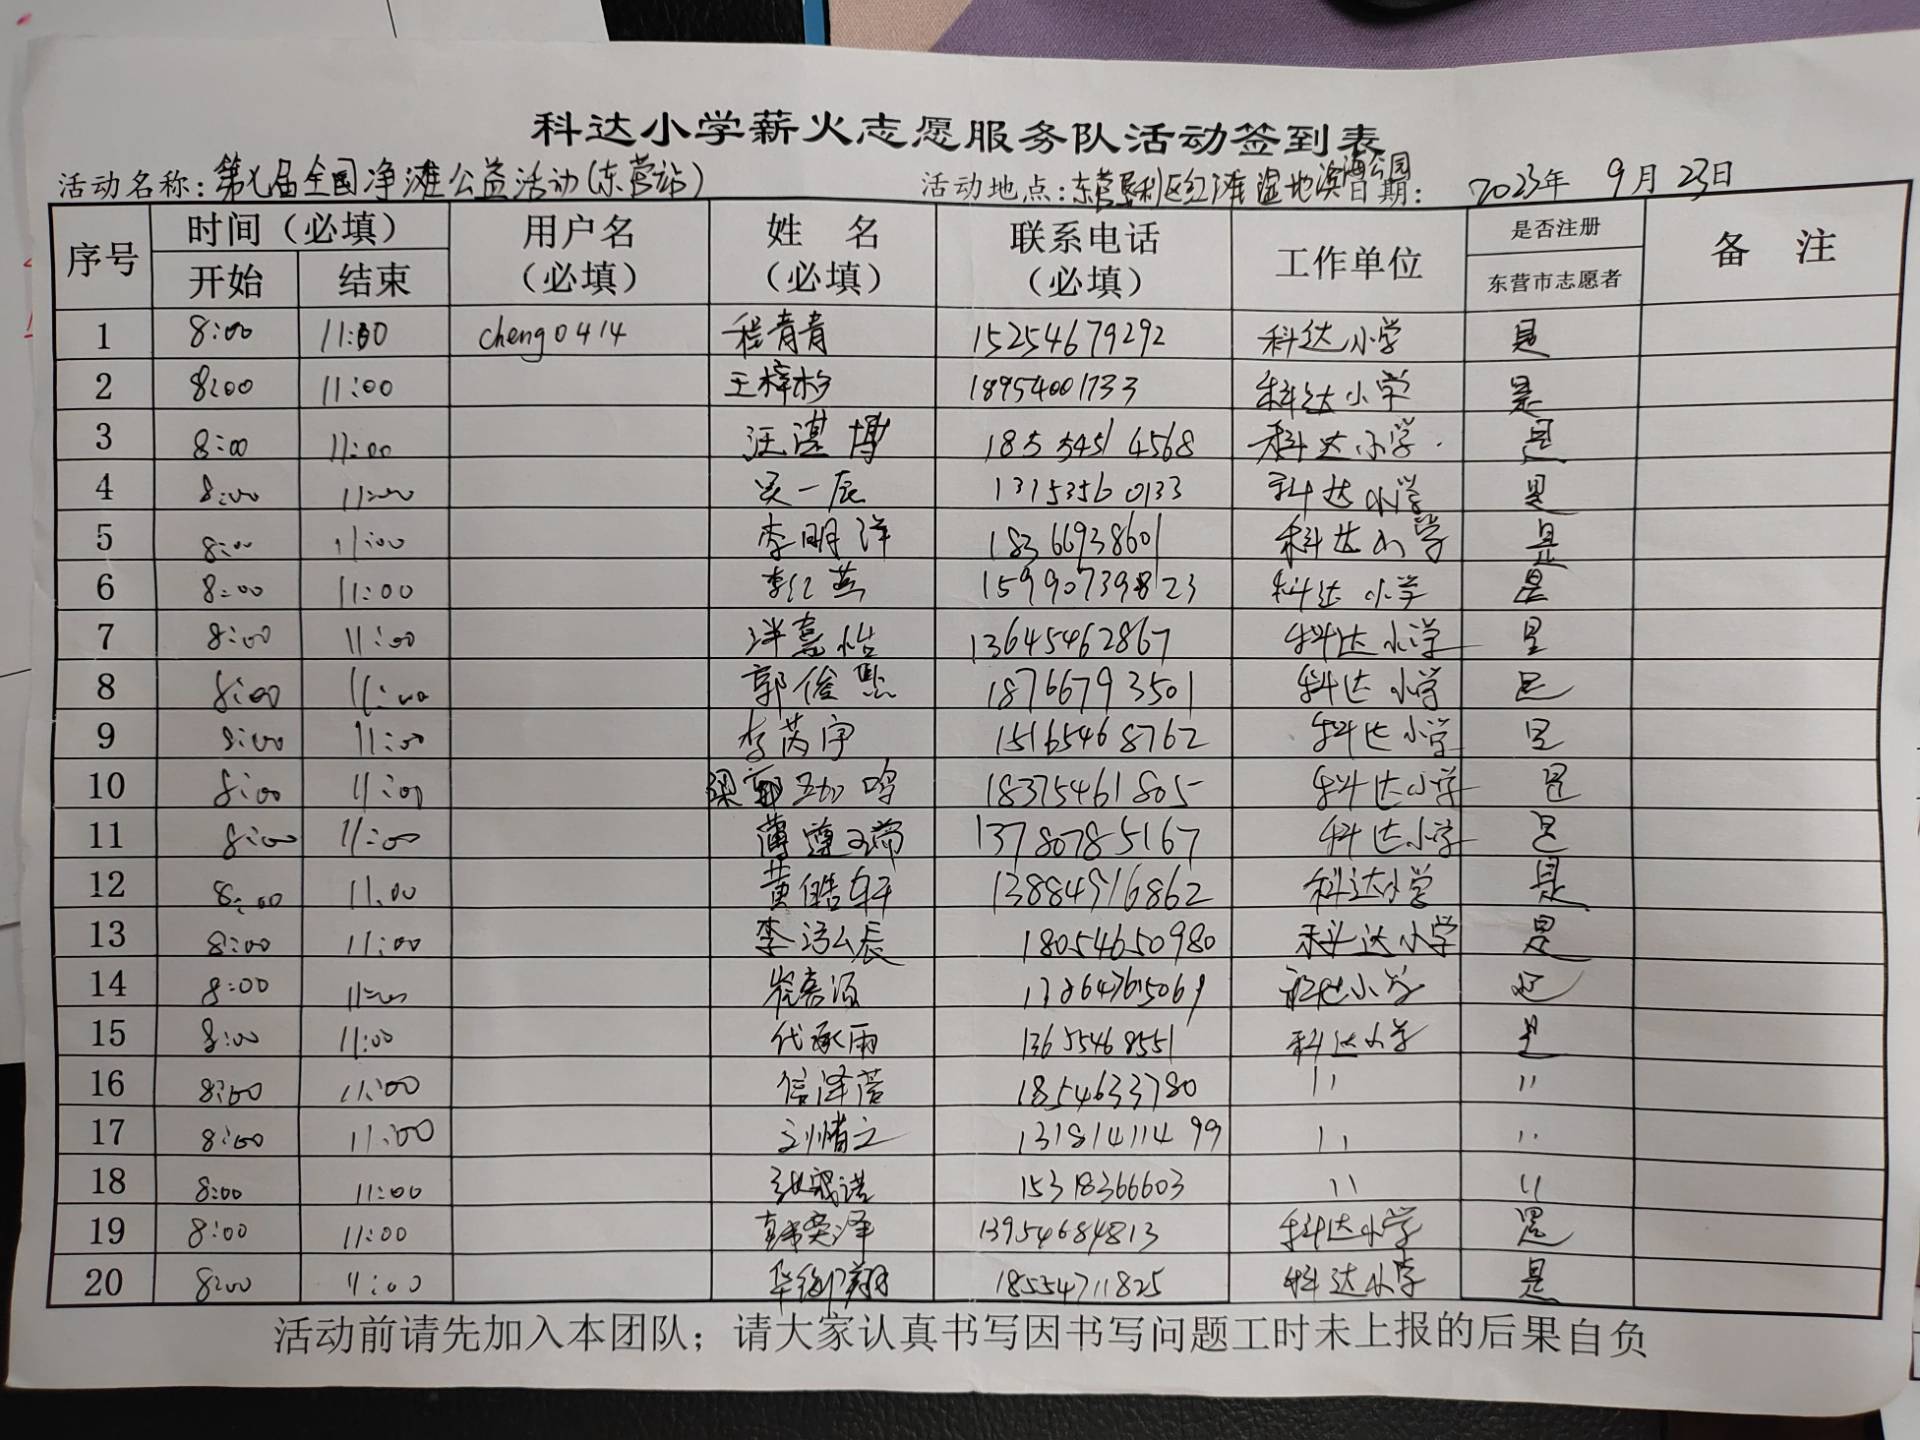 科达小学薪火志愿服务队活动签到表
活动名称：第七届全国净滩公益活动(东营站) 活动地点：东营垦利区红滩湿地滨海公园 日期：2023年 9月 23日
序号 时间（必填） 用户名（必填） 姓 名（必填） 联系电话（必填） 工作单位 是否注册 备 注
开始 结束 东营市志愿者
1 8:00 11:00 cheng0414 程青青 15254679292 科达小学 是
2 8:00 11:00 王梓杉 18954001733 科达小学 是
3 8:00 11:00 汪湛博 18554514568 科达小学 是
4 8:00 11:00 吴一辰 13153560133 科达小学 是
5 8:00 11:00 李明洋 18366938601 科达小学 是
6 8:00 11:00 李红燕 15990739823 科达小学 是
7 8:00 11:00 嘉怡 13645462867 科达小学 是
8 8:00 11:00 郭俊熙 18766793501 科达小学 是
9 8:00 11:00 李芮宇 15165468762 科达小学 是
10 8:00 11:00 梁 18375461805 科达小学 是
11 8:00 11:00 薄 13780785167 科达小学 是
12 8:00 11:00 黄皓轩 13884916862 科达小学 是
13 8:00 11:00 李 辰 18054650980 科达小学 是
14 8:00 11:00 科达小学 是
15 8:00 11:00 代承雨 13655468551 科达小学 是
16 8:00 11:00 信泽 1854633780 〃 〃
17 8:00 11:00 刘 之 13181411499 〃 〃
18 8:00 11:00 诺 15318366603 〃 〃
19 8:00 11:00 韩奕泽 13954684813 科达小学 是
20 8:00 11:00 华 翔 18554711825 科达小学 是
活动前请先加入本团队；请大家认真书写因书写问题工时未上报的后果自负